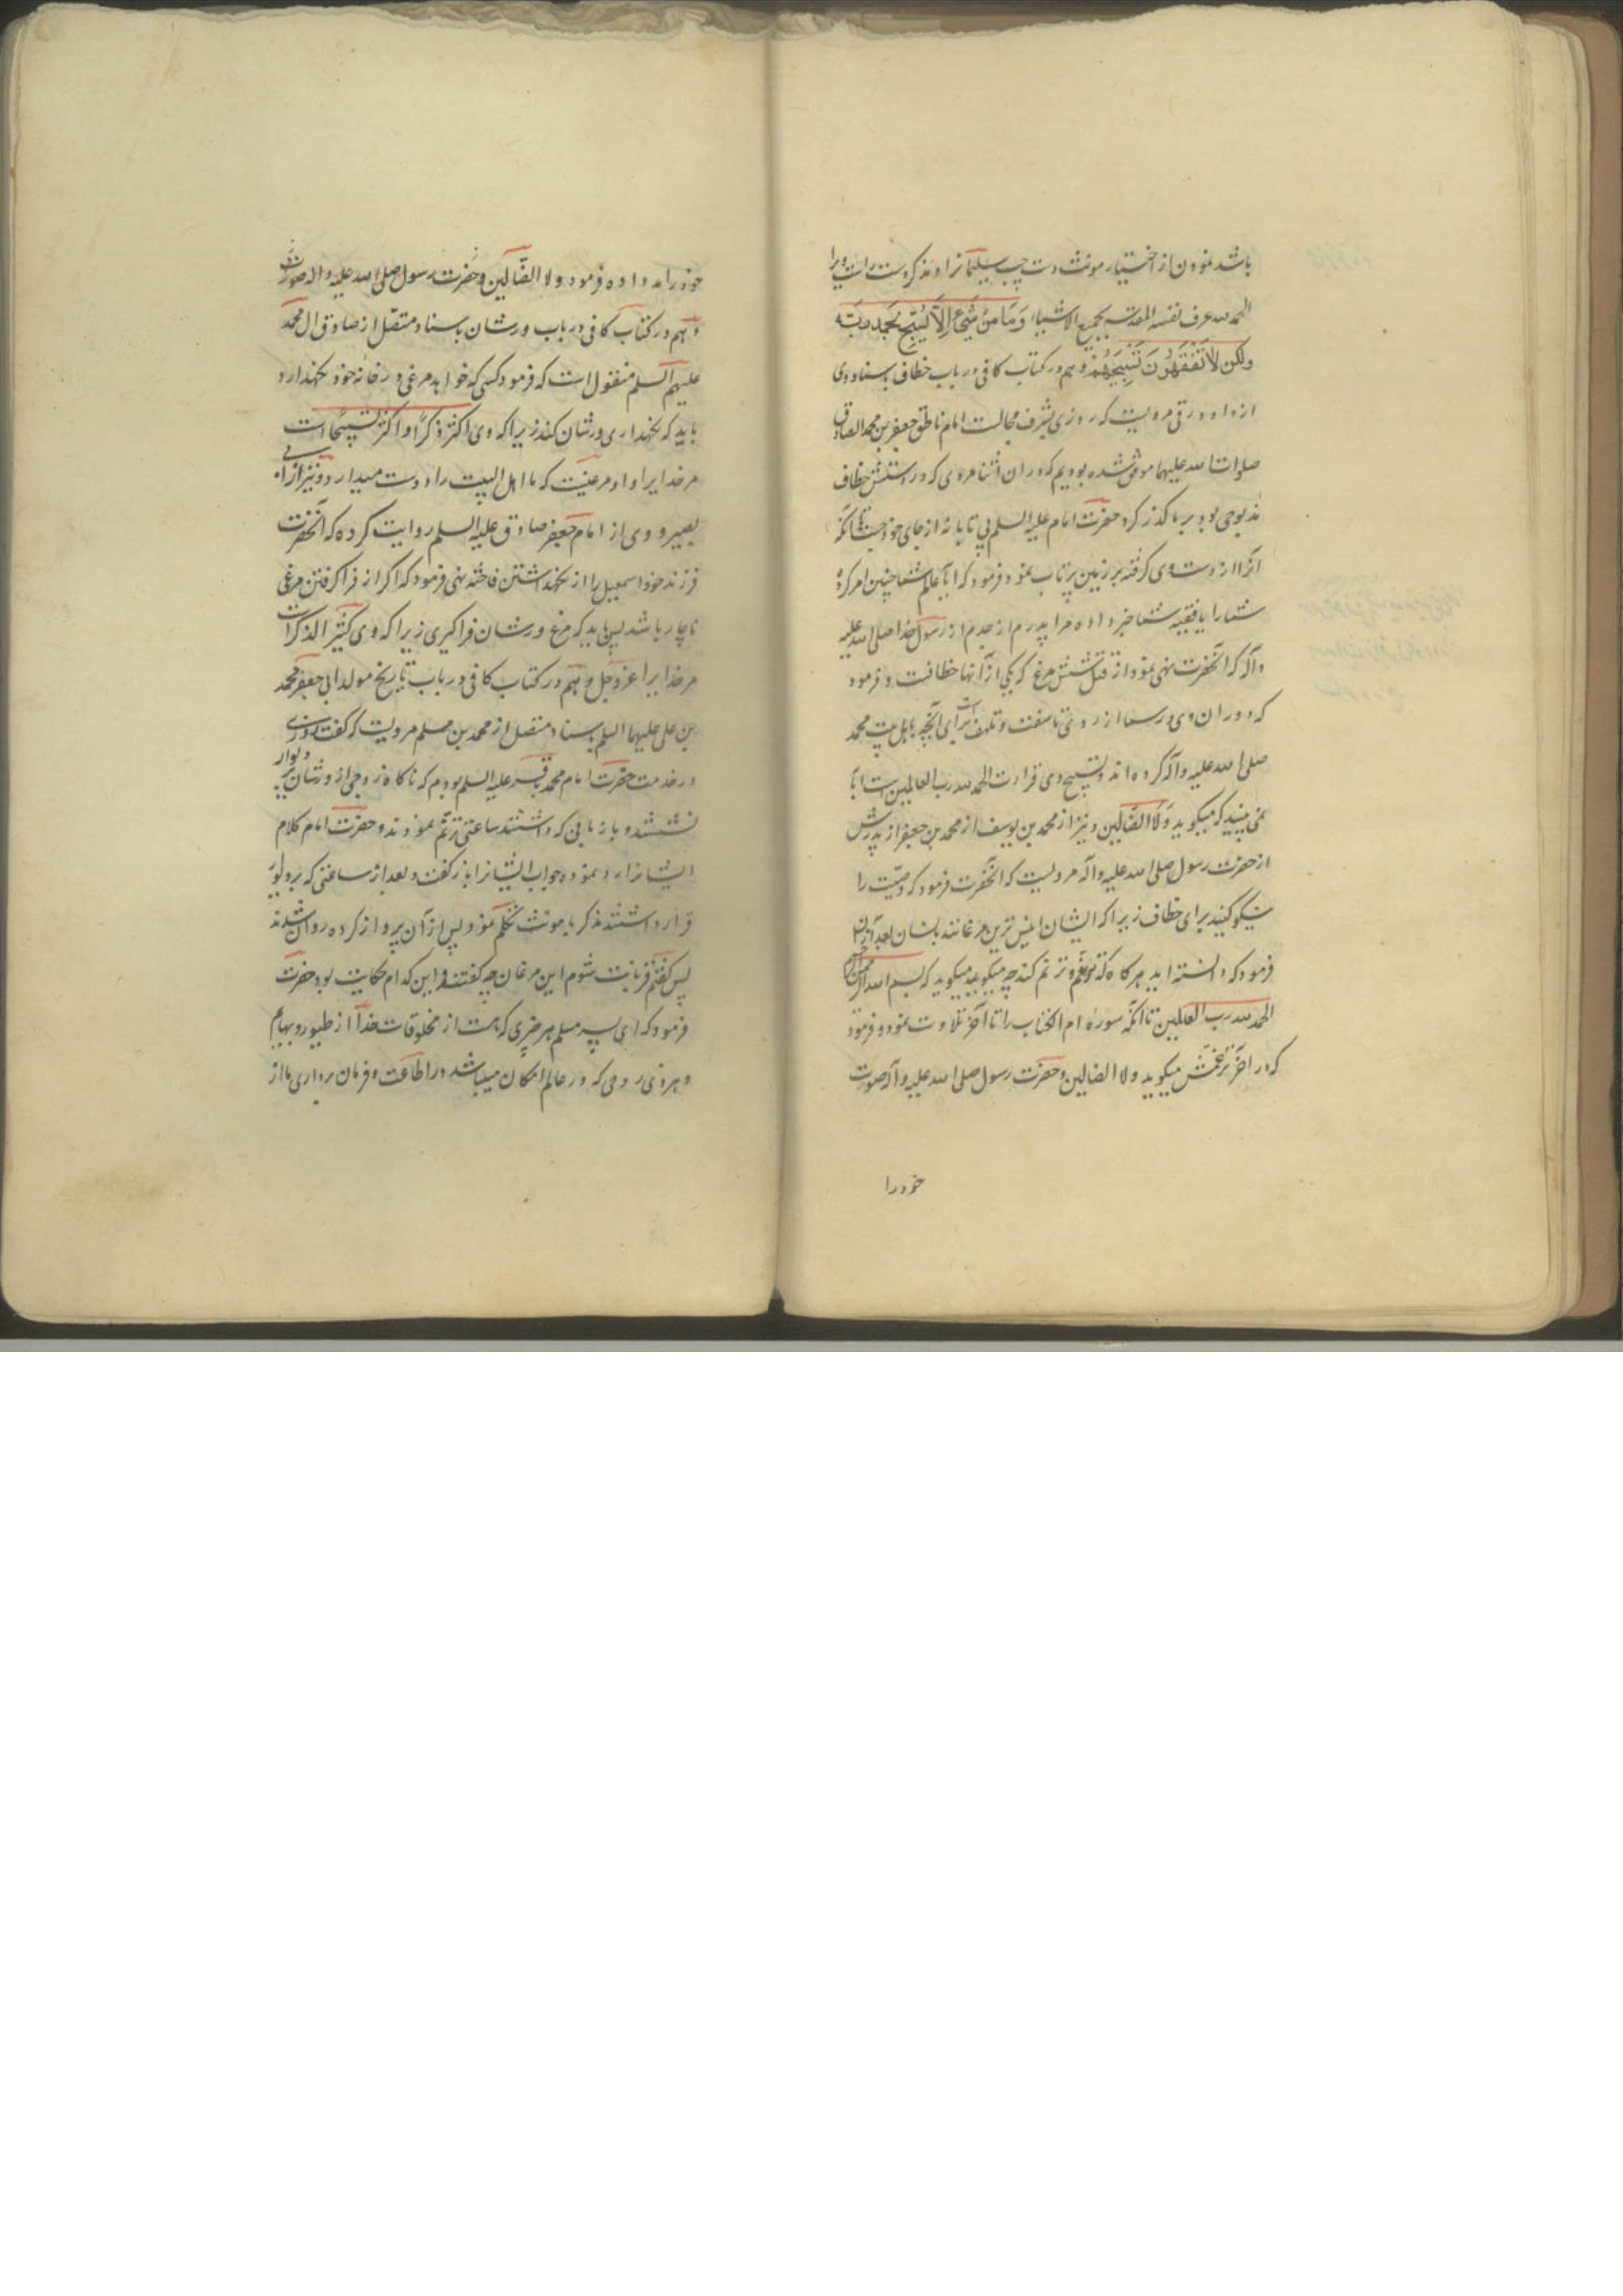 باشد نمودن از اختیار مونث دست چپ سلیمانرا و مذکر دست راست ویرا
الحمد لله عرف نفسه المقدسه بجمیع الاشیاء وَمَا مِنْ شَیْءٍ اِلاّ یُسَبِّحُ بِحَمْدِ رَبِّه
ولکن لاٰ تَفْقَهُونَ تَسْبِیحَهُمْ و هم در کتاب کافی در باب خطاف باسناد وی
از داود رقی مرویست که روزی بشرف مجالست امام ناطق جعفر بن محمد الصادق
صلوات الله علیهما موفق شده بودیم که در ان اثنا مردی که در دستش خطاف
مذبوحی بود بر ما گذر کرد حضرت امام علیه السلم بی تابانه از جای خود جست تا آنکه
انرا از دست وی گرفته بر زمین پرتاب نمود و فرمود که ایا عالم شما چنین امر کرده
شما را یا فقیه شما خبر داده مرا پدرم از جدم از رسول خدا صلی الله علیه
و آله که آنحضرت نهی نمود از قتل شش مرغ که یکی از آنها خطافست و فرمود
که دوران وی در سما از روی تاسفست و تلهف است برای آنچه باهل بیت محمد
صلی الله علیه و آله کرده اند و تسبیح وی قراءت الحمد لله رب العالمین است ایا
نمی بینید که میگوید وَلاَ الضّالین و نیز از محمد بن یوسف از محمد بن جعفر از پدرش
از حضرت رسول صلی الله علیه و آله مرویست که آنحضرت فرمود که وصیّت را
نیکو کنید برای خطاف زیرا که ایشان انیس ترین مرغانند بانسان بعد از آن
فرمود که دانسته اید هرگاه که ترنم کند چه میگوید میگوید که بسم الله الرحمن الرحیم
الحمد لله رب العالمین تا انکه سورهٔ ام الکتاب را تا آخر تلاوت نمود و فرمود
که در اخر ترنمش میگوید ولا الضالین و حضرت رسول صلی الله علیه و آله صوت
خود را
خود را مد داده فرمود ولا الضّالین و حضرت رسول صلی الله علیه و اله صوتش
و هم در کتاب کافی در باب ورشان باسناد متصل از صادق ال محمد
علیهم السلم منقول است که فرمود کسی که خواهد مرغی در خانه خود نگهدارد
باید که نگهداری ورشان کند زیرا که وی اکثر ذکرًا و اکثر تسبیحًا است
مر خدایرا و او مرغیست که ما اهل البیت را دوست میدارد و نیز از ابی
بصیر و وی از امام جعفر صادق علیه السلم روایت کرده که آنحضرت
فرزند خود اسمعیل را از نگهداشتن فاخته نهی فرمود که اگر از فرا گرفتن مرغی
ناچار باشد پس باید که مرغ ورشان فراگیری زیرا که وی کثیر الذکر است
مر خدایرا عز و جل و هم در کتاب کافی در باب تاریخ مولد ابی جعفر محمد
بن علی علیهما السلم باسناد متصل از محمد بن مسلم مرویست که گفت روزی
در خدمت حضرت امام محمد باقر علیه السلم بودم که ناگاه زوجی از ورشان بر دیوار
نشستند و با زبانی که داشتند ساعتی ترنّم نمودند و حضرت امام کلام
ایشانرا رد نموده جواب ایشانرا باز گفت و بعد از ساعتی که بر دیوار
قرار داشتند مذکر با مونث تکلّم نمود پس از آن پرواز کرده روان شدند
پس گفتم قربانت شوم این مرغان چه گفتند و این کدام حکایت بود حضرت
فرمود که ای پسر مسلم هر چیزی که هست از مخلوقات خدا از طیور و بهایم
و هر ذی روحی که در عالم امکان میباشد در اطاعت و فرمان برداری ما از